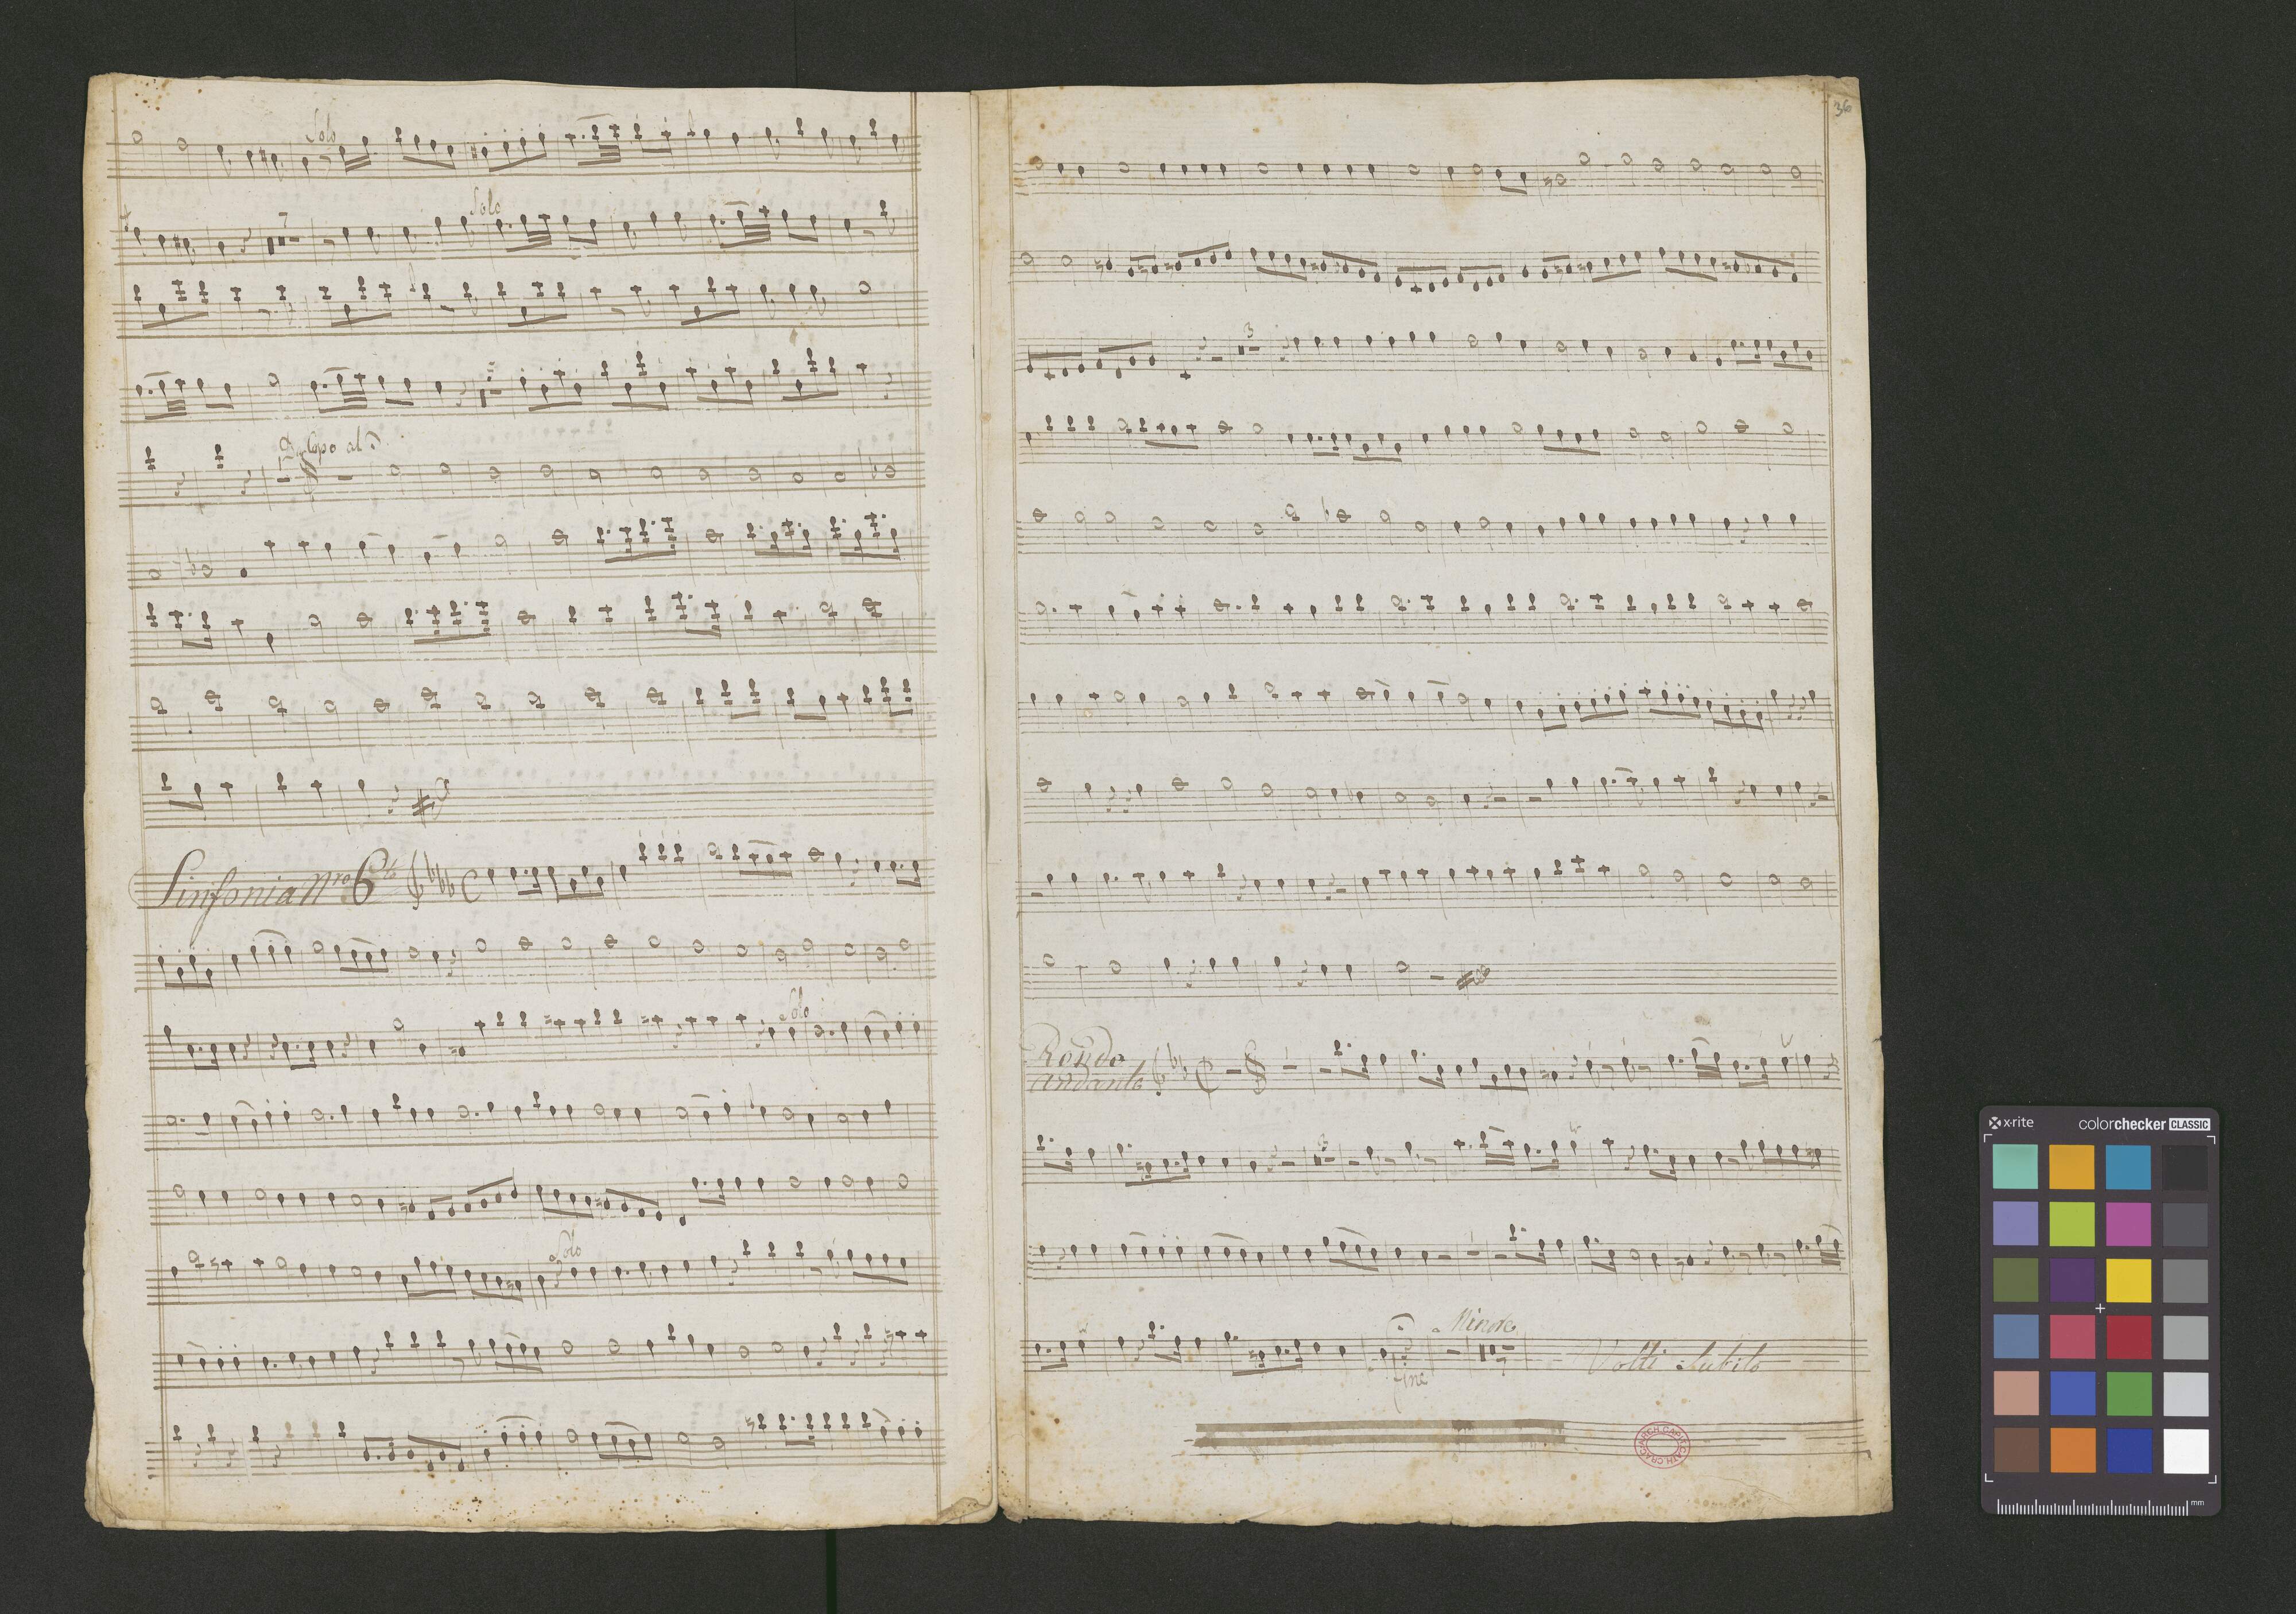 Solo
Solo
7
Da Capo al
Sinfonia Nro 6ta
Solo
Solo
36
3
Rondo
Andante
3
Minore
fine
7
Volti Subito
x-rite
colorchecker CLASSIC
mm